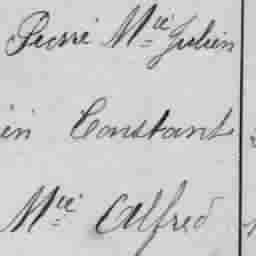 Pierre Mie Julien
in Constant
Mie Alfred